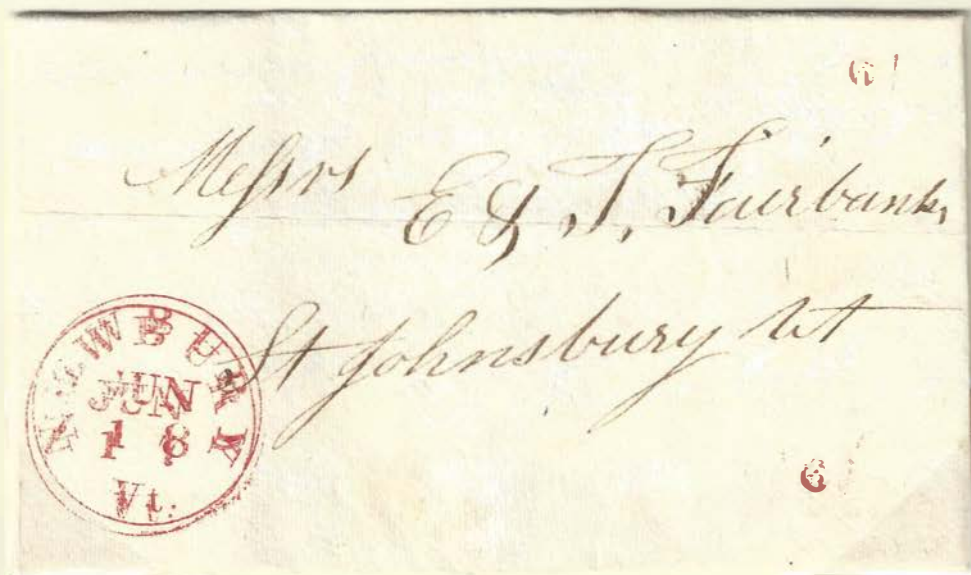 6
Messrs E & T. Fairbanks
St Johnsbury Vt
NEWBURY
JUN
18
Vt.
6